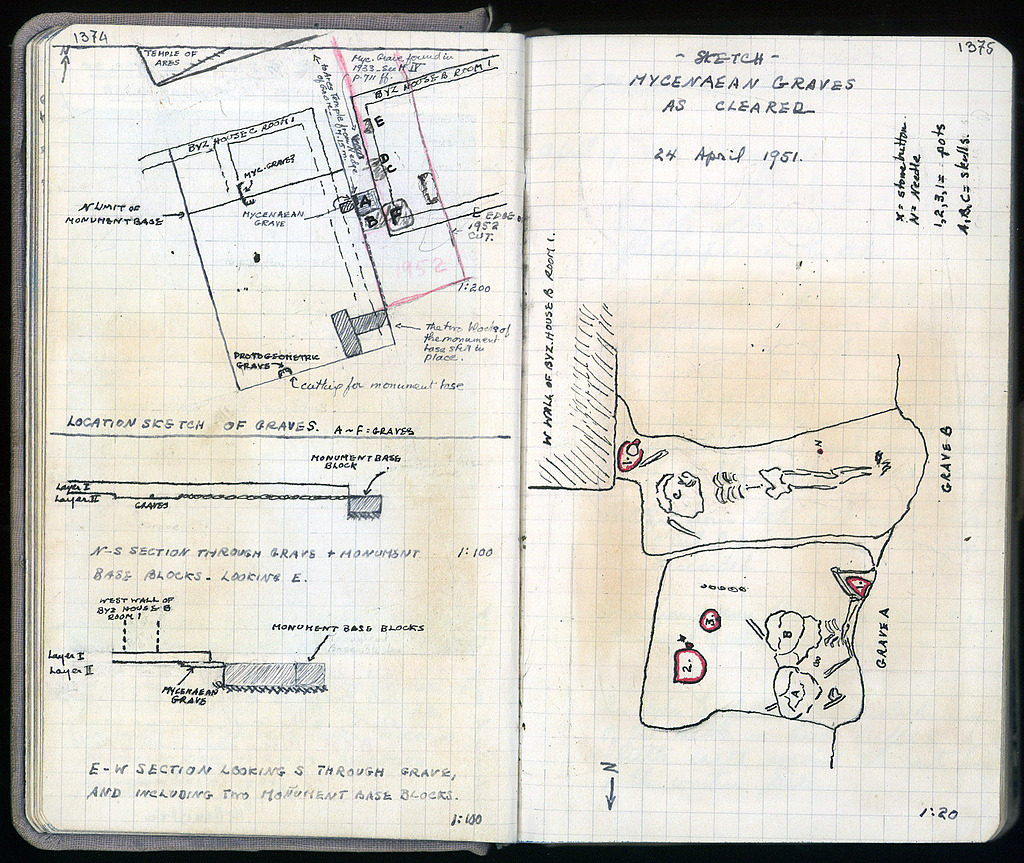 1374
N
TEMPLE OF
ARES
Myc. Grave found in
1933 - Sec
p. 711 ff.
BYZ HOUSE B ROOM 1
BYZ HOUSE C ROOM 1
MYC. GRAVE?
MYCENAEAN
GRAVE
N LIMIT OF
MONUMENT BASE
E
D
C
A
B
F
E EDGE
1952
CUT.
1952
1:200
The two blocks of
the monument
base still in
place.
PROTOGEOMETRIC
GRAVE
cutting for monument base
LOCATION SKETCH OF GRAVES. A–F = GRAVES
MONUMENT BASE
BLOCK
Layer I
Layer II
GRAVES
N-S SECTION THROUGH GRAVE + MONUMENT 1:100
BASE BLOCKS - LOOKING E.
WEST WALL OF
BYZ HOUSE B
ROOM 1
MONUMENT BASE BLOCKS
Layer I
Layer II
MYCENAEAN
GRAVE
E-W SECTION LOOKING S THROUGH GRAVE,
AND INCLUDING TWO MONUMENT BASE BLOCKS.
1:100
1375
- SKETCH -
MYCENAEAN GRAVES
AS CLEARED
24 April 1951.
X = stone button
N = Needle
1, 2, 3, 1 = pots
A, B, C = skulls.
W WALL OF BYZ. HOUSE B ROOM 1.
1.
C
N
GRAVE B
1.
3.
X
2.
B
A
GRAVE A
N
1:20